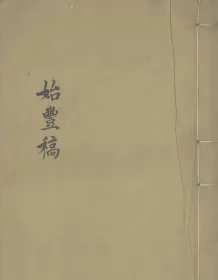 始豐稿